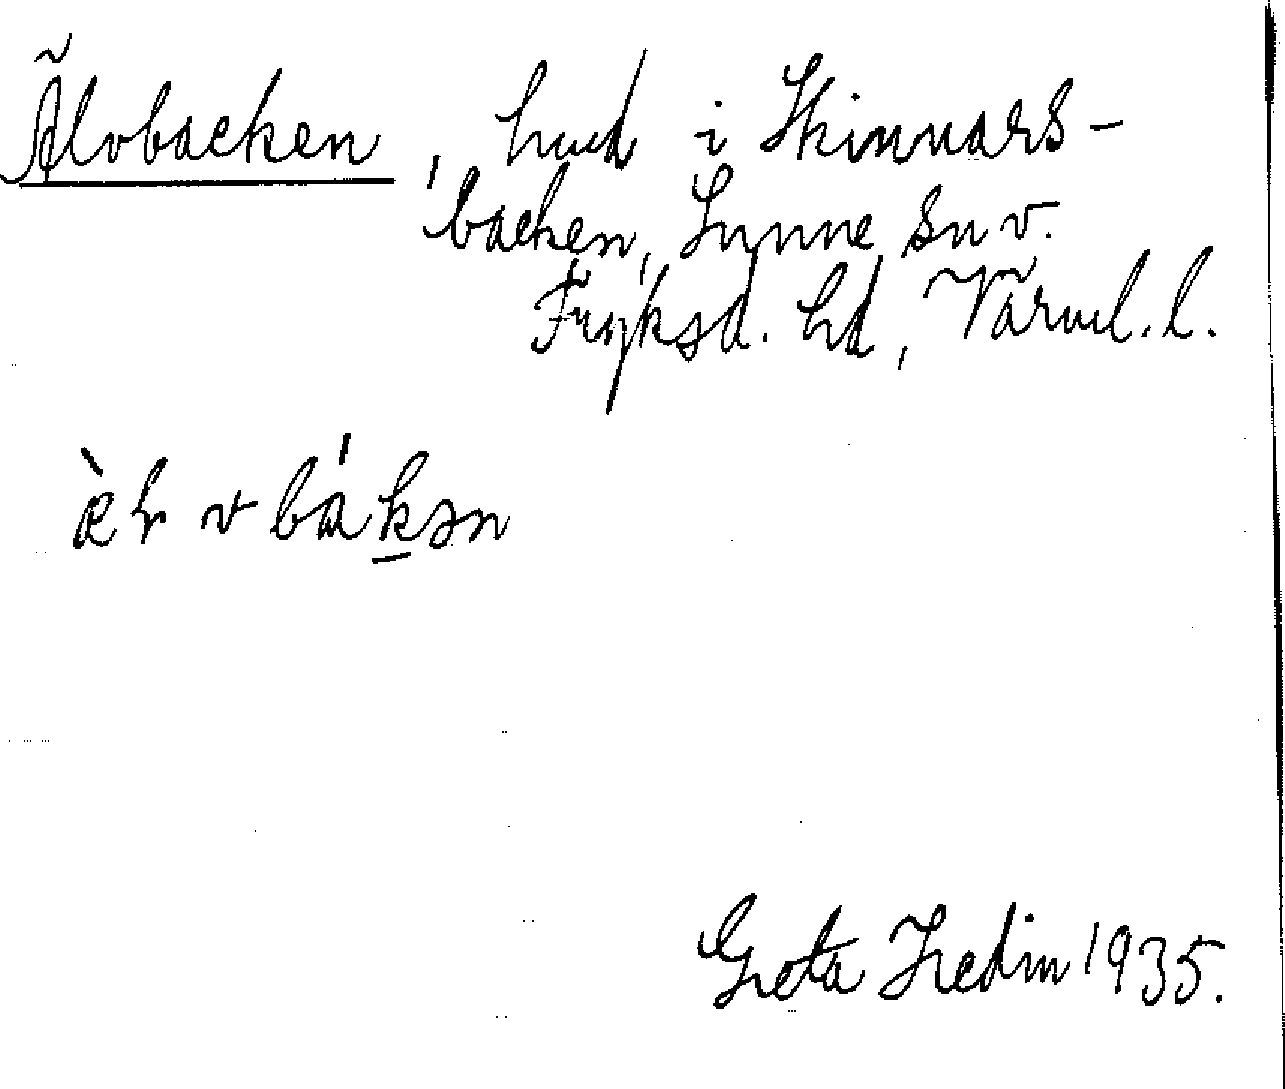 Älvbacken, hmd i Skinnars-
backen, Sunne sn v.
Fryksd. hd, Värml. l.
Greta Hedin 1935.